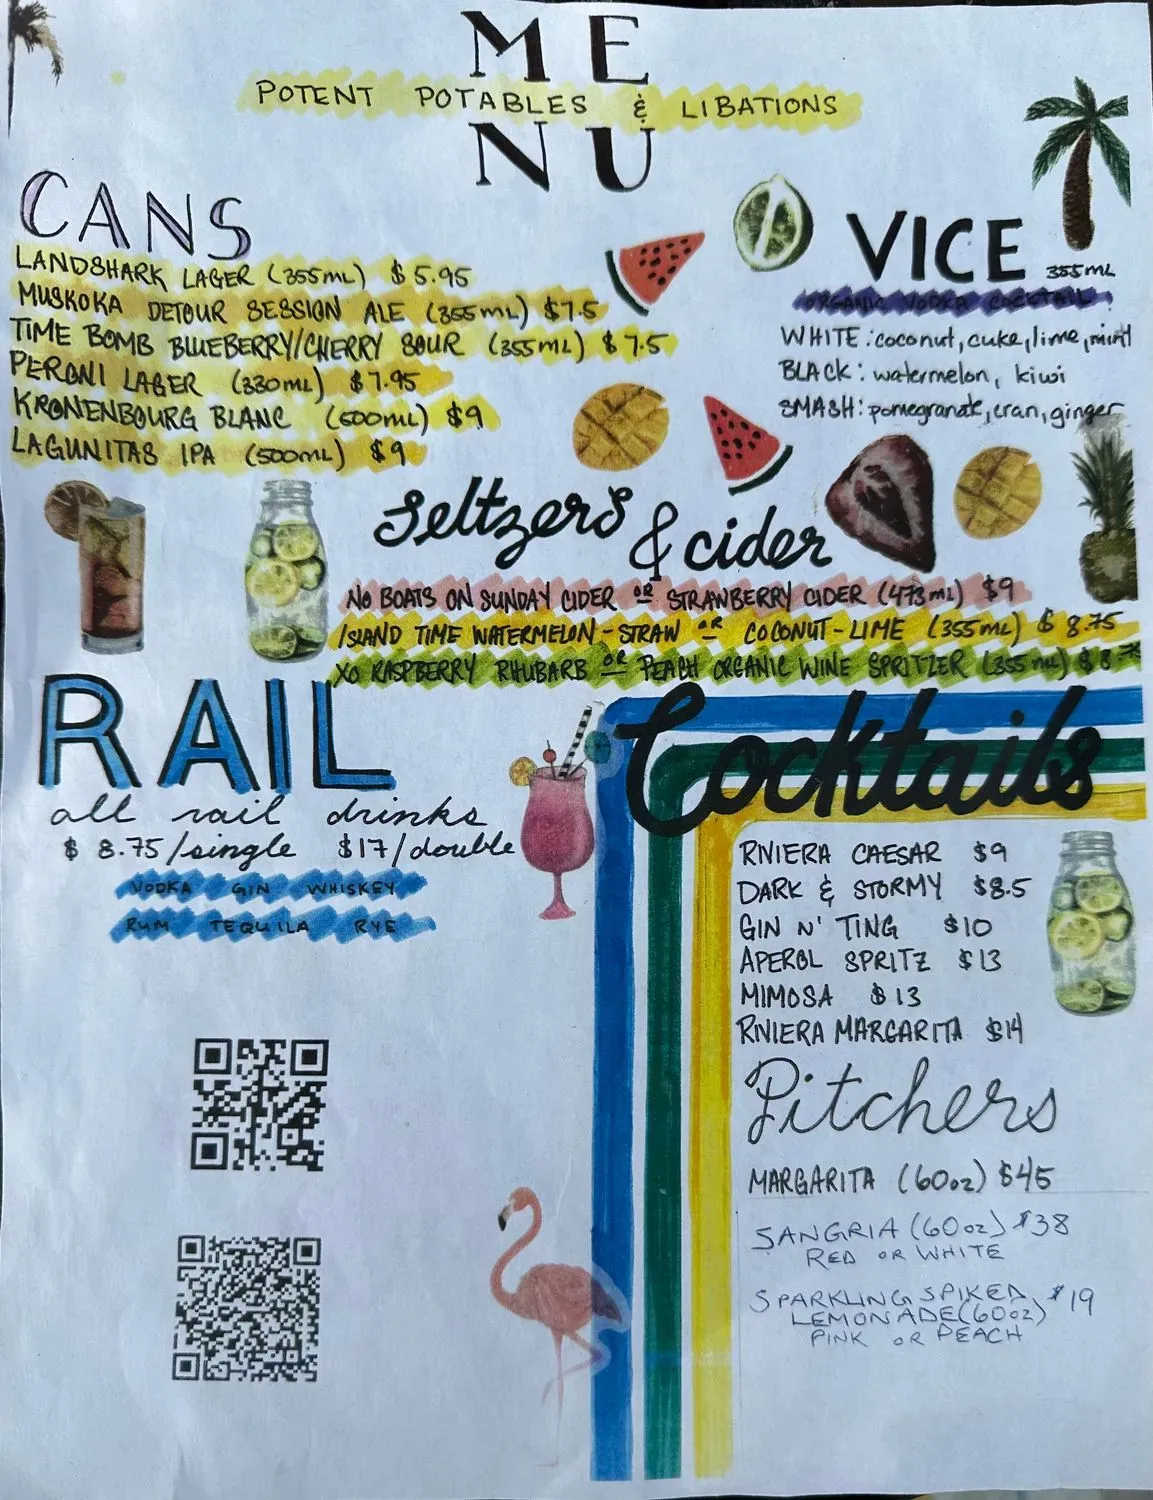 ME
POTENT POTABLES & LIBATIONS
NU
CANS
LANDSHARK LAGER (355mL) $5.95
MUSKOKA DETOUR SESSION ALE (355mL) $7.5
TIME BOMB BLUEBERRY/CHERRY SOUR (355mL) $7.5
PERONI LAGER (330mL) $7.95
KRONENBOURG BLANC (500mL) $9
LAGUNITAS IPA (500mL) $9
VICE 355mL
ORGANIC VODKA COCKTAIL
WHITE: coconut, cuke, lime, mint
BLACK: watermelon, kiwi
SMASH: pomegranate, cran, ginger
Seltzers & cider
NO BOATS ON SUNDAY CIDER OR STRAWBERRY CIDER (473mL) $9
ISLAND TIME WATERMELON-STRAW OR COCONUT-LIME (355mL) $8.75
XO RASPBERRY RHUBARB OR PEACH ORGANIC WINE SPRITZER (355mL) $8.75
RAIL
all rail drinks
$8.75/single $17/double
VODKA GIN WHISKEY
RUM TEQUILA RYE
Cocktails
RIVIERA CAESAR $9
DARK & STORMY $8.5
GIN N' TING $10
APEROL SPRITZ $13
MIMOSA $13
RIVIERA MARGARITA $14
Pitchers
MARGARITA (60oz) $45
SANGRIA (60oz) $38
RED OR WHITE
SPARKLING SPIKED $19
LEMONADE (60oz)
PINK OR PEACH